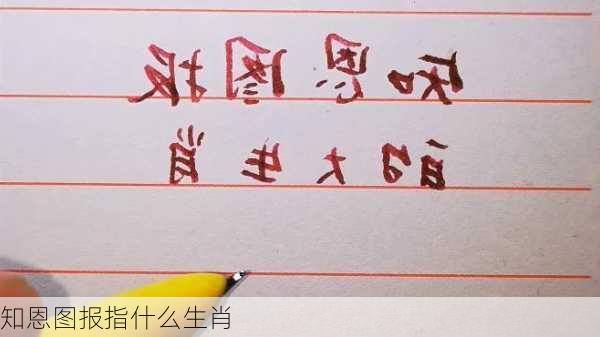 知恩图报
大生
知恩图报指什么生肖